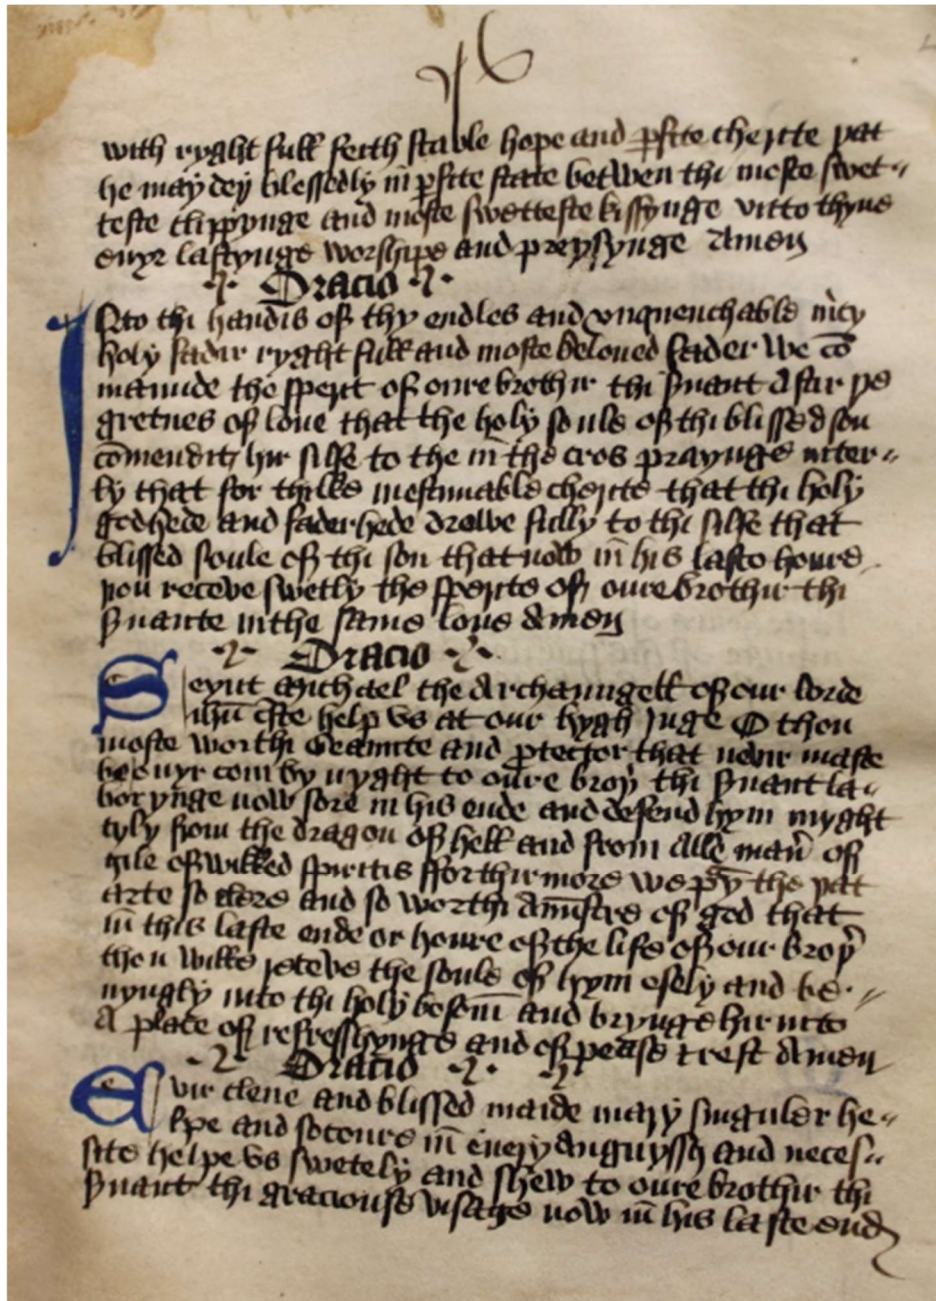 with ryght full feith stable hope and ꝑfite cherite þat
he may dey blessedly in ꝑfite state betwen thi moste swet
teste clippynge and moste swetteste kissynge vnto thyne
euyr lastynge worschipe and preysynge Amen
Oracio
Into thi handis of thy endles and vnquenchable mcy
holy fadir ryght full and moste beloued fader we co
maunde the sperit of oure brothir thi suant Aftir þe
gretnes of loue that the holy soule of thi blissed son
comendith hir silfe to the in the cros prayynge inter
ly that for thilke inestimable cherite that thi holy
godhede and faderhede drowe fully to thi silfe that
blissed soule of thi son that now in his laste houre
þou receve swetly the sperite of oure brothir thi
suante in the same loue Amen
Oracio
Seynt Michael the Archaungell of our lorde
ihu criste help vs at our hygh Juge O thou
moste worthi Geaunte and ꝑtector that neuir maste
be ouyr com by nyght to oure broþ thi suant la
borynge now sore in his ende and defend hym myght
tyly from the dragon of hell and from alle man of
gile of wikked spiritis fforthirmore we pͣy the þat
arte so clere and so worthi Amistre of god that
in this laste ende or houre of the life of our broþ
thou wilke receve the soule of hym esely and be
nyngly into thi holy bosom and brynge hir into
A place of refresshynge and of pease & rest Amen
Oracio
Evir clene and blissed maide mary singuler he
lpe and socoure in euery Anguyssh and neces
site helpe vs swetely and shew to oure brothir thi
suant thi graciouse visage now in his laste end